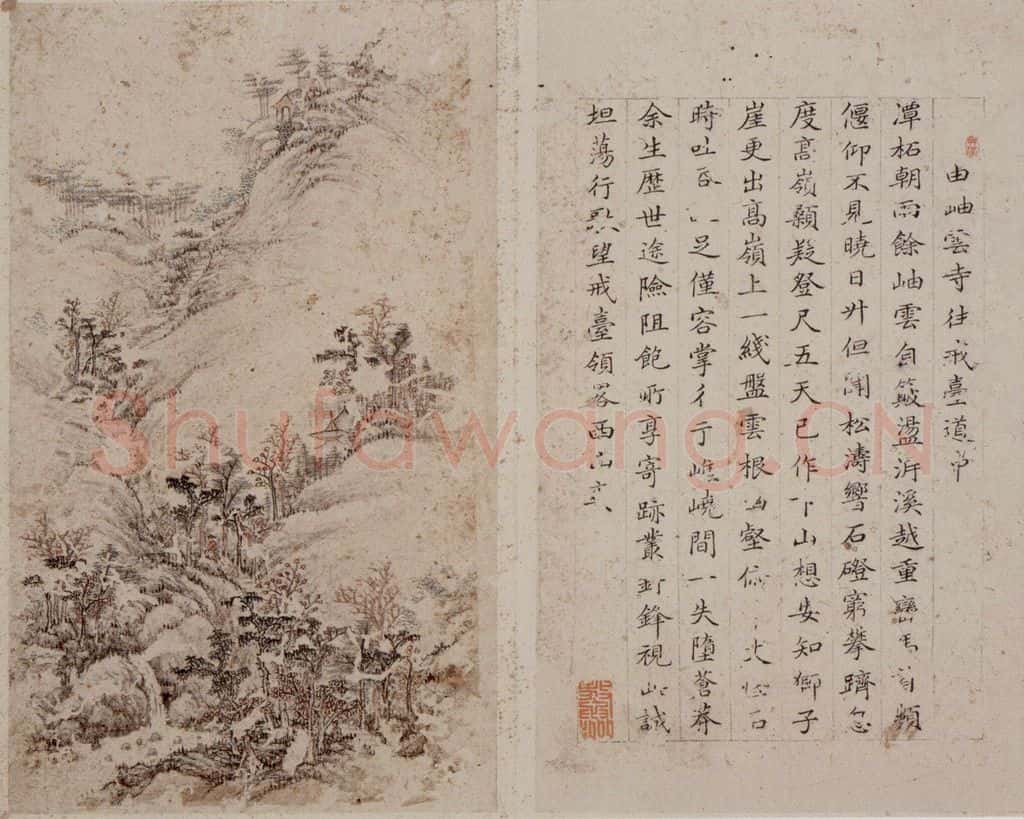 由岫雲寺往戒臺道中
潭柘朝雨餘岫雲自簸盪泝溪越重巒首頻
偃仰不見曉日升但聞松濤響石磴窮攀躋忽
度高嶺顙疑登尺五天已作下山想安知獅子
崖更出高嶺上一綫盤雲根壑石
時吐吞足僅容掌行于嶕嶢間一失墮蒼莽
余生歷世途險阻飽所享寄跡叢鋒視此誠
坦蕩行望戒臺領畧西山爽
Shufawang.CN